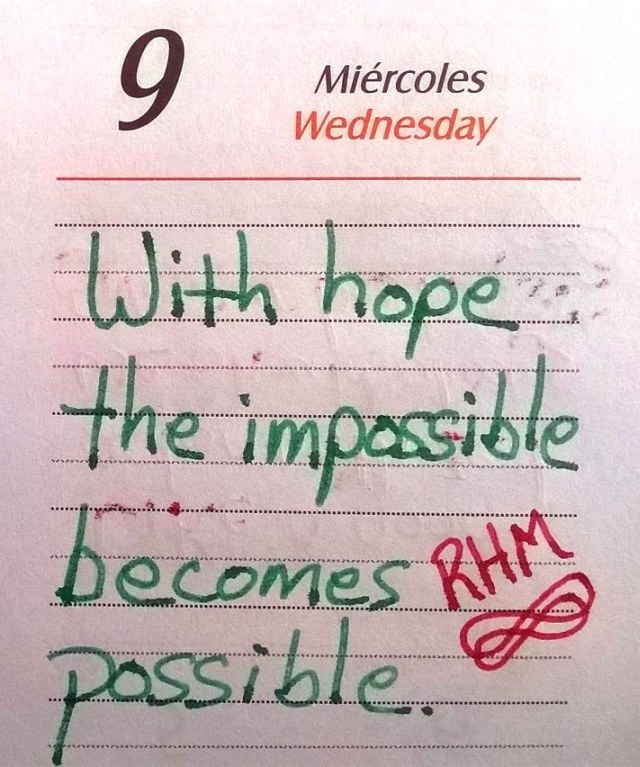 9 Miércoles
Wednesday
With hope
the impossible
becomes RHM
possible.